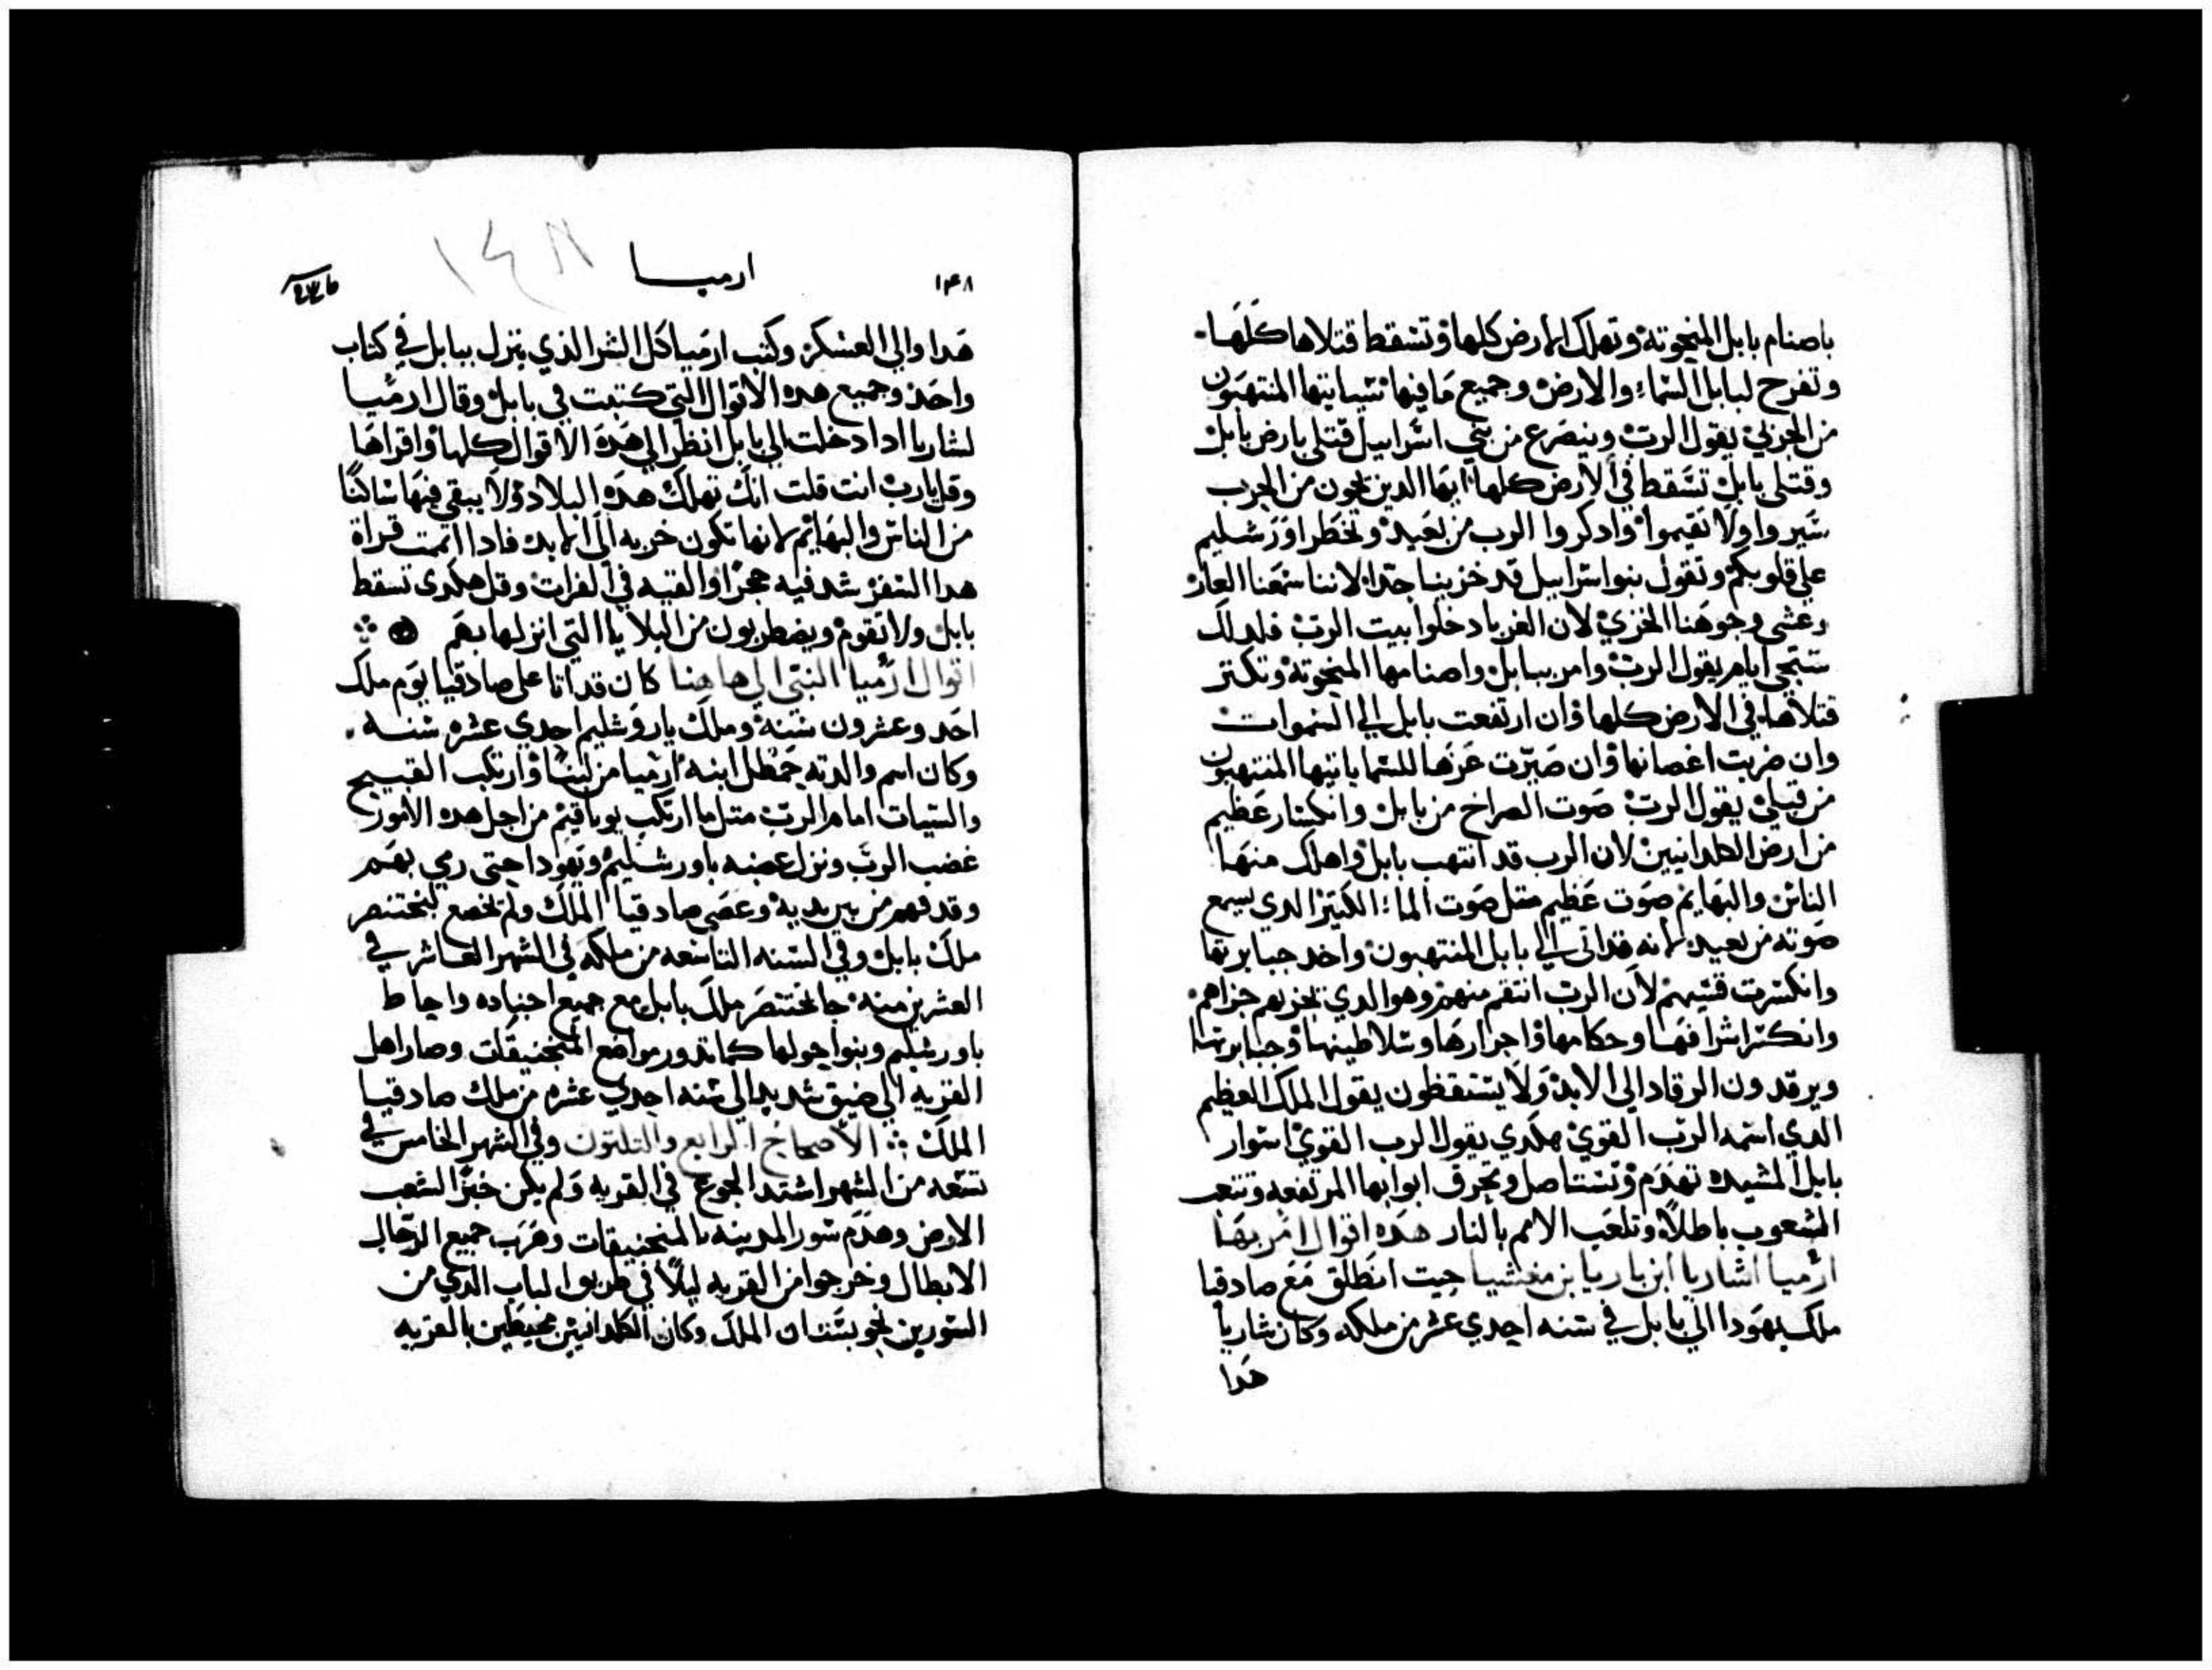 باصنام بابل المنحوته وتهلك الارض كلها وتسقط قتلاها كلها
وتفرح لبابل السماء والارض وجميع ما فيها تسياتيها المنتهبون
من الجربي يقول الرب وينصرع من بني اسراييل قتلي بارض بابل
وقتلي بابل تسقط في الارض كلها ايها الدين نجون من الحرب
سيروا ولا تقيموا وادكروا الرب من بعيد وتخطر اورشليم
علي قلوبكم وتقول بنواسراييل قد خزينا جدا لاننا سمعنا العار
وغشي وجوهنا الخزي لان الغربا دخلوا بيت الرب فلدلك
ستجي ايام يقول الرب وامر ببابل واصنامها المنحوته وتكتر
قتلاها في الارض كلها وان ارتفعت بابل الي السموات
وان ضربت اغصانها وان صيرت عزها للسما ياتيها المنتهبون
من قبلي يقول الرب صوت الصراخ من بابل وانكسار عظيم
من ارض الكلدانيين لان الرب قد انتهب بابل واهلك منها
الناس والبهايم صوت عظيم متل صوت الماء الكتير الدي يسمع
صوته من بعيد لانه قد اتي الي بابل المنتهبون واخد جبابرتها
وانكسرت قسيهم لان الرب انتقم منهم وهو الدي يجزيهم جزاهم
وانكسر اشرافها وحكامها واحرارها وسلاطينها وجبابرتها
ويرقدون الرقاد الي الابد ولا يستيقظون يقول الملك العظيم
الدي اسمه الرب القوي هكدي يقول الرب القوي اسوار
بابل المشيده تهدم وتستاصل وتحرق ابوابها المرتفعه وتتعب
الشعوب باطلا وتلعب الامم بالنار هده اقوال امر بها
ارميا اشاريا ابن باريا بن مغشيا حيت انطلق مع صادقيا
ملك يهودا الي بابل في سنه احدي عشر من ملكه وكان شاريا
هدا
١٤٨ ارميا
١٤٨
هدا والي العسكر وكتب ارميا كل الشر الذي ينزل ببابل في كتاب
واحد وجميع هده الاقوال التي كتبت في بابل وقال ارميا
لشاريا ادا دخلت الي بابل انظر الي هده الاقوال كلها واقراها
وقل يارب انت قلت انك تهلك هده البلاد ولا يبقي فيها ساكنا
من الناس والبهايم لانها تكون خربه الي الابد فادا اتممت قراة
هدا السفر شد فيه حجرا والقيه في الفرات وقل هكدي تسقط
بابل ولا تقوم ويضطربون من البلايا التي انزلها بهم
اقوال ارميا النبي الي هاهنا كان قد اتا علي صادقيا يوم ملك
احد وعشرون سنة وملك ياروشليم احدي عشره سنه
وكان اسم والدته حمطل ابنه ارميا من لبنا وارتكب القبيح
والسيات امام الرب متل ما ارتكب يوياقيم من اجل هده الامور
غضب الرب ونزل غضبه باورشليم ويهودا حتي رمي بهم
وقدفهم من بين يديه وعصي صادقيا الملك ولم يخضع لبختنصر
ملك بابل وفي السنه التاسعه من ملكه في الشهر العاشر في
العشرين منه جا بختنصر ملك بابل مع جميع اجناده واحاط
باورشليم وبنوا حولها كما تدور مواضع المنجنيقات وصار اهل
القريه الي ضيق شديد الي سنه احدي عشره من ملك صادقيا
الملك الاصحاح الرابع والتلتون وفي الشهر الخامس في
تسعه من الشهر اشتد الجوع في القريه ولم يكن خبز الشعب
الارض وهدم سور المدينه بالمنجنيقات وهرب جميع الرجال
الابطال وخرجوا من القريه ليلا في طريق الباب الدي من
السورين نحو بستان الملك وكان الكلدانين محيطين بالقريه